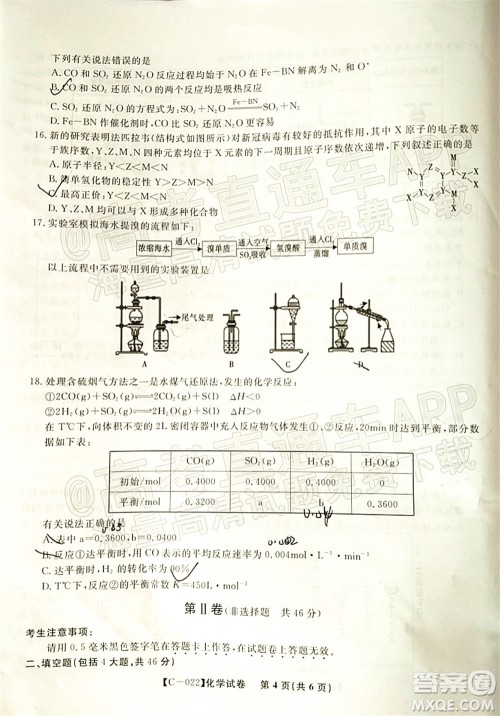 下列有关说法错误的是
A. CO 和 SO₂ 还原 N₂O 过程中，N₂O 在 Fe-BN 解离为 N₂ 和 O*
B. CO 和 SO₂ 还原 N₂O 的反应均是吸热反应
C. SO₂ 还原 N₂O 的方程式为：SO₂+N₂O Fe-BN SO₃+N₂
16. 新的研究表明法匹拉韦(结构式简式如图)对新冠病毒有较好的抵抗作用，其中 X 原子的电子数等
于族序数，Y、Z、M、N 均是 X 元素的下一周期且分属不同族的元素，原子序数依次递增，下列叙述正确的是
A. 原子半径：Y<Z<M<N
B. 简单氢化物的稳定性 Y>Z>M>N
D. Y、X、M 均可以与 N 形成二元共价化合物
17. 实验室模拟海水提溴的流程如下：
浓缩海水 通入Cl₂ 溴单质 通入空气 SO₂吸收 氢溴酸 通入Cl₂ 蒸馏 溴单质
以上流程中不可能用到的实验装置是
尾气处理
A B C D
18. 处理含硫烟气方法之一是水煤气还原法，发生的化学反应：
①2CO(g)+SO₂(g)⇌S(g)+2CO₂(g) ΔH<0
②2H₂(g)+SO₂(g)⇌S(g)+2H₂O(g) ΔH<0
在 T℃下，向体积不变的 2L 密闭容器中充入反应物气体发生反应，20min 时达到平衡，部分
数据如下表：
CO(g) SO₂(g) H₂(g) H₂O(g)
初始/mol 0.4000 0.4000 0.4000 0
平衡/mol 0.3200 a b 0.3600
有关说法正确的是
A. 表中 a=0.3600，b=0.0400
B. 反应①达平衡时，用 CO 表示的平均反应速率为 0.004mol·L⁻¹·min⁻¹
C. 反应②达平衡时，H₂ 的转化率为 90%
D. T℃下，反应②的平衡常数 K=450L·mol⁻¹
第Ⅱ卷(非选择题 共 46 分)
考生注意事项：
请用 0.5 毫米黑色签字笔在答题卡上作答，在试题卷上答题无效。
二、填空题(包括 4 大题，共 46 分)
【C-022】化学试卷 第 4 页(共 6 页)